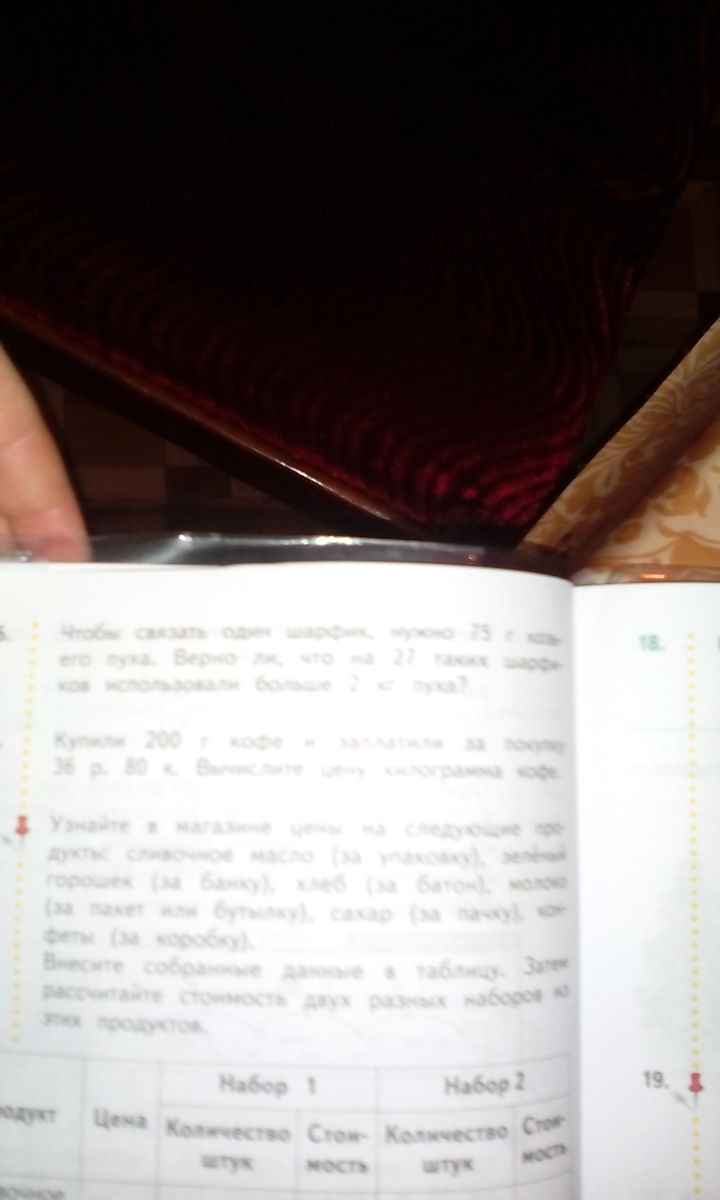 5.
Чтобы связать один шарфик, нужно 75 г козь-
его пуха. Верно ли, что на 27 таких шарфи-
ков использовали больше 2 кг пуха?
Купили 200 г кофе и заплатили за покупку
36 р. 80 к. Вычислите цену килограмма кофе.
Узнайте в магазине цены на следующие про-
дукты: сливочное масло (за упаковку), зелёный
горошек (за банку), хлеб (за батон), молоко
(за пакет или бутылку), сахар (за пачку), кон-
феты (за коробку).
Внесите собранные данные в таблицу. Затем
рассчитайте стоимость двух разных наборов из
этих продуктов.
Набор 1 Набор 2
одукт Цена Количество штук Стои-мость Количество штук Стои-мость
вочное
18.
19.